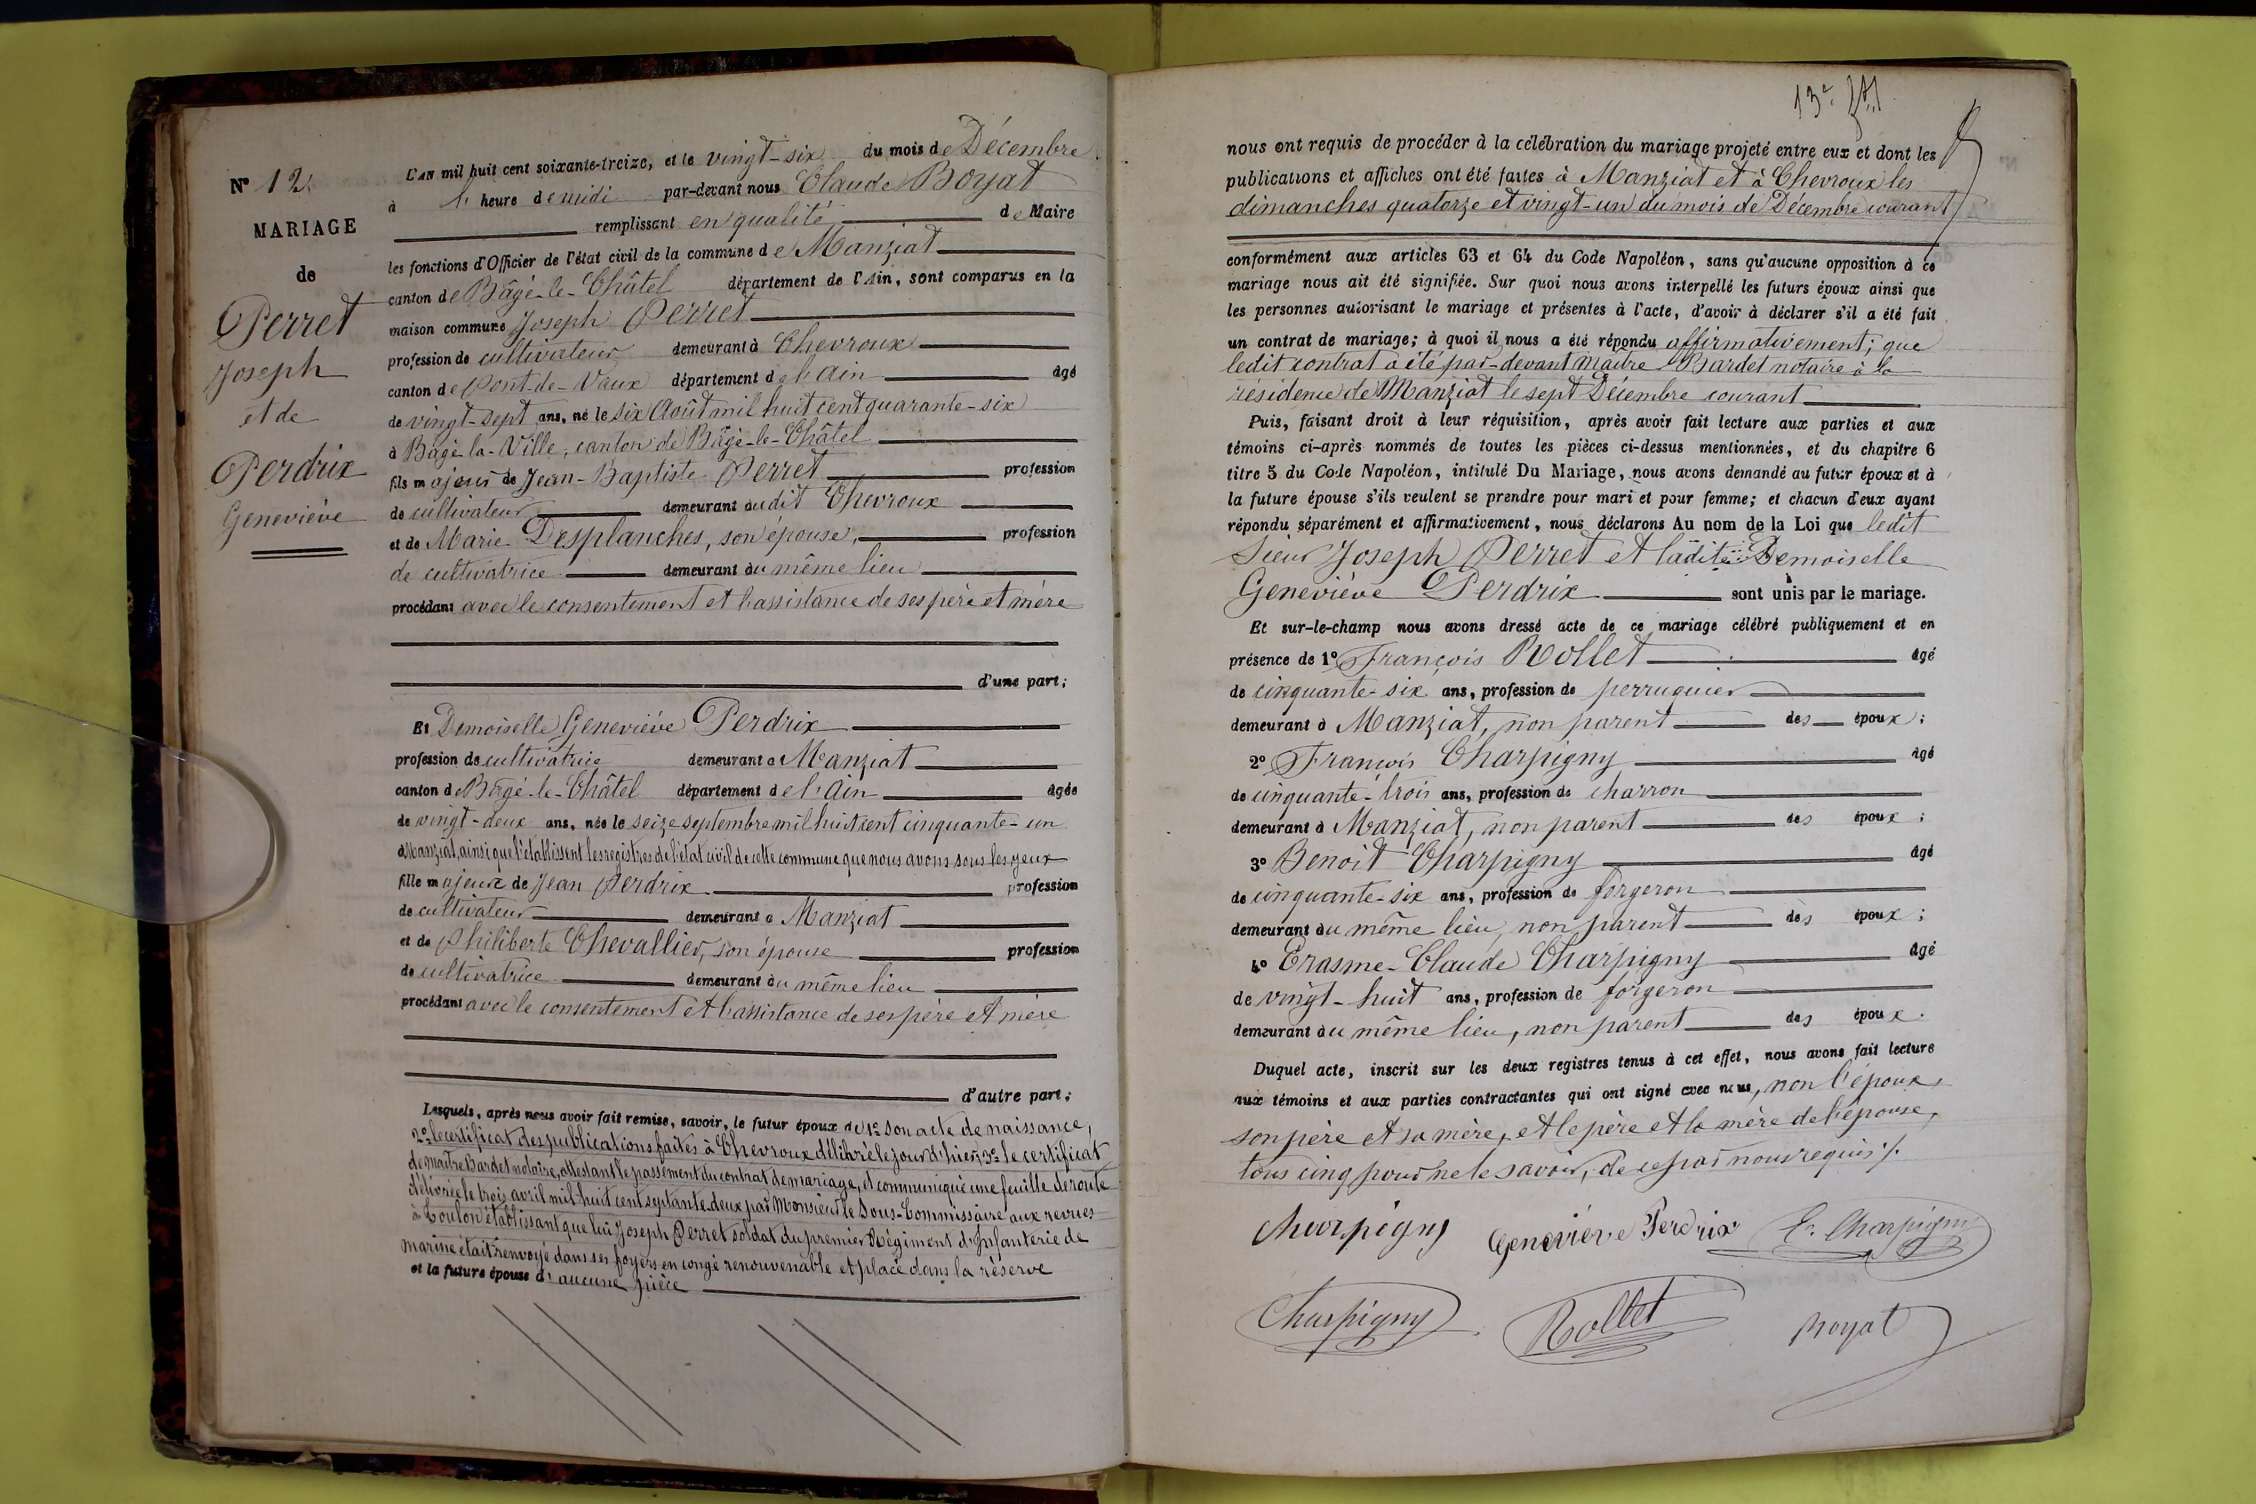 N° 12.
MARIAGE
de
Perret
Joseph
et de
Perdrix
Geneviève
L'AN mil huit cent soixante-treize, et le vingt-six du mois de Décembre
à l' heure de midi par-devant nous Claude Boyat
remplissant en qualité de Maire
les fonctions d'Officier de l'état civil de la commune de Manziat
canton de Bâgé-le-Châtel département de l'Ain, sont comparus en la
maison commune Joseph Perret
profession de cultivateur demeurant à Chevroux
canton de Pont-de-Vaux département de l'Ain âgé
de vingt-sept ans, né le six Août mil huit cent quarante-six
à Bâgé-la-Ville, canton de Bâgé-le-Châtel
fils majeur de Jean-Baptiste Perret profession
de cultivateur demeurant audit Chevroux
et de Marie Desplanches, son épouse, profession
de cultivatrice demeurant au même lieu
procédant avec le consentement et l'assistance de ses père et mère
d'une part;
Et Demoiselle Geneviève Perdrix
profession de cultivatrice demeurant à Manziat
canton de Bâgé-le-Châtel département de l'Ain âgée
de vingt-deux ans, née le seize septembre mil huit cent cinquante-un
à Manziat, ainsi que l'établissent les registres de l'état civil de cette commune que nous avons sous les yeux
fille majeure de Jean Perdrix profession
de cultivateur demeurant à Manziat
et de Philiberte Chevallier, son épouse profession
de cultivatrice demeurant au même lieu
procédant avec le consentement et l'assistance de ses père et mère
d'autre part;
Lesquels, après nous avoir fait remise, savoir, le futur époux de 1° son acte de naissance,
2° le certificat des publications faites à Chevroux délibré le jour d'hier, 3° le certificat
de maître Bardet notaire, attestant le passement du contrat de mariage, et communiqué une feuille de route
délivrée le trois avril mil-huit cent septante-deux par Monsieur le Sous-Commissaire aux revues
à Toulon établissant que lui Joseph Perret soldat du premier Régiment d'Infanterie de
marine était renvoyé dans ses foyers en congé renouvenable et placé dans la réserve
et la future épouse d'aucune pièce
13e
nous ont requis de procéder à la célébration du mariage projeté entre eux et dont les
publications et affiches ont été faites à Manziat et à Chevroux les
dimanches quatorze et vingt-un du mois de Décembre courant
conformément aux articles 63 et 64 du Code Napoléon, sans qu'aucune opposition à ce
mariage nous ait été signifiée. Sur quoi nous avons interpellé les futurs époux ainsi que
les personnes autorisant le mariage et présentes à l'acte, d'avoir à déclarer s'il a été fait
un contrat de mariage; à quoi il nous a été répondu affirmativement; que
ledit contrat a été par-devant maître Bardet notaire à la
résidence de Manziat le sept Décembre courant
Puis, faisant droit à leur réquisition, après avoir fait lecture aux parties et aux
témoins ci-après nommés de toutes les pièces ci-dessus mentionnées, et du chapitre 6
titre 5 du Code Napoléon, intitulé Du Mariage, nous avons demandé au futur époux et à
la future épouse s'ils veulent se prendre pour mari et pour femme; et chacun d'eux ayant
répondu séparément et affirmativement, nous déclarons Au nom de la Loi que ledit
Sieur Joseph Perret et ladite Demoiselle
Geneviève Perdrix sont unis par le mariage.
Et sur-le-champ nous avons dressé acte de ce mariage célébré publiquement et en
présence de 1° François Rollet âgé
de cinquante-six ans, profession de perruquier
demeurant à Manziat, non parent des époux;
2° François Charpigny âgé
de cinquante-trois ans, profession de charron
demeurant à Manziat, non parent des époux;
3° Benoît Charpigny âgé
de cinquante-six ans, profession de forgeron
demeurant au même lieu, non parent des époux;
4° Erasme-Claude Charpigny âgé
de vingt-huit ans, profession de forgeron
demeurant au même lieu, non parent des époux.
Duquel acte, inscrit sur les deux registres tenus à cet effet, nous avons fait lecture
aux témoins et aux parties contractantes qui ont signé avec nous, non l'époux,
son père et sa mère, et le père et la mère de l'épouse,
tous cinq pour ne le savoir, de ce par nous requis ./.
Charpigny Geneviève Perdrix C. Charpigny
Charpigny Rollet Boyat